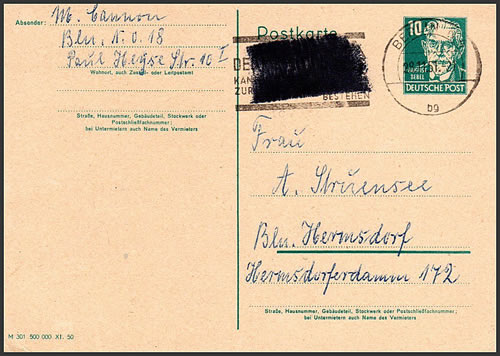 Absender: M. Cannon
Bln. N.O. 18
Paul Heyse Str. 10 I
Wohnort, auch Zustell- oder Leitpostamt
Straße, Hausnummer, Gebäudeteil, Stockwerk oder Postschließfachnummer;
bei Untermietern auch Name des Vermieters
M 301 500 000. XI. 50
Postkarte
DE
KAN
ZUR
BESTEHEN
10
AUGUST
BEBEL
DEUTSCHE POST
BE
bg
Frau
A. Struensee
Bln. Hermsdorf
Hermsdorferdamm 172
Straße, Hausnummer, Gebäudeteil, Stockwerk oder Postschließfachnummer;
bei Untermietern auch Name des Vermieters